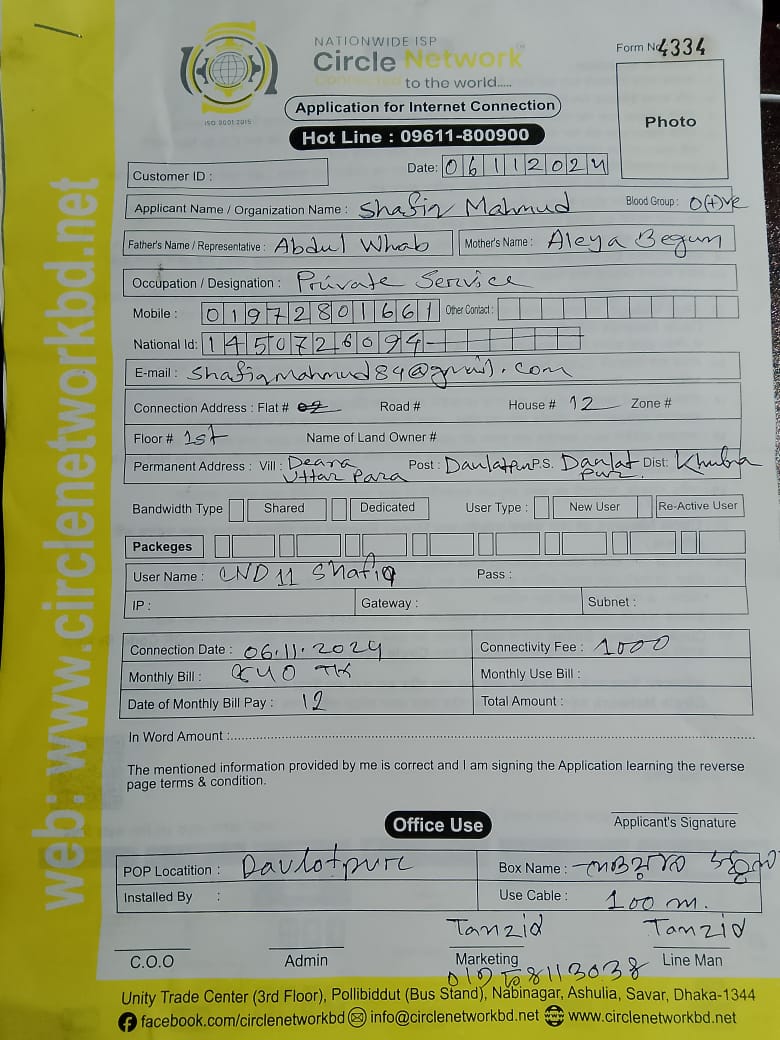 NATIONWIDE ISP
Circle Network
Connected to the world.....
ISO 9001:2015
Form No 4334
Application for Internet Connection
Hot Line : 09611-800900
Photo
Customer ID :
Date: 06112024
Applicant Name / Organization Name : Shafiq Mahmud Blood Group : O(+)ve
Father's Name / Representative : Abdul Whab Mother's Name : Aleya Begum
Occupation / Designation : Private Service
Mobile : 01972801661 Other Contact :
National Id: 1450726094
E-mail : shafiqmahmud84@gmail.com
Connection Address : Flat # Road # House # 12 Zone #
Floor # 1st Name of Land Owner #
Permanent Address : Vill : Deara Uttar Para Post : Daulatpur P.S. Daulat pur Dist: Khulna
Bandwidth Type Shared Dedicated User Type : New User Re-Active User
Packeges
User Name : CND 11 Shafiq Pass :
IP : Gateway : Subnet :
Connection Date : 06.11.2024 Connectivity Fee : 1000
Monthly Bill : TK Monthly Use Bill :
Date of Monthly Bill Pay : 12 Total Amount :
In Word Amount :
The mentioned information provided by me is correct and I am signing the Application learning the reverse
page terms & condition.
Applicant's Signature
Office Use
POP Locatition : Daulotpur Box Name :
Installed By : Use Cable : 100 m.
Tanzid Tanzid
C.O.O Admin Marketing Line Man
Unity Trade Center (3rd Floor), Pollibiddut (Bus Stand), Nabinagar, Ashulia, Savar, Dhaka-1344
facebook.com/circlenetworkbd info@circlenetworkbd.net www.circlenetworkbd.net
web: www.circlenetworkbd.net